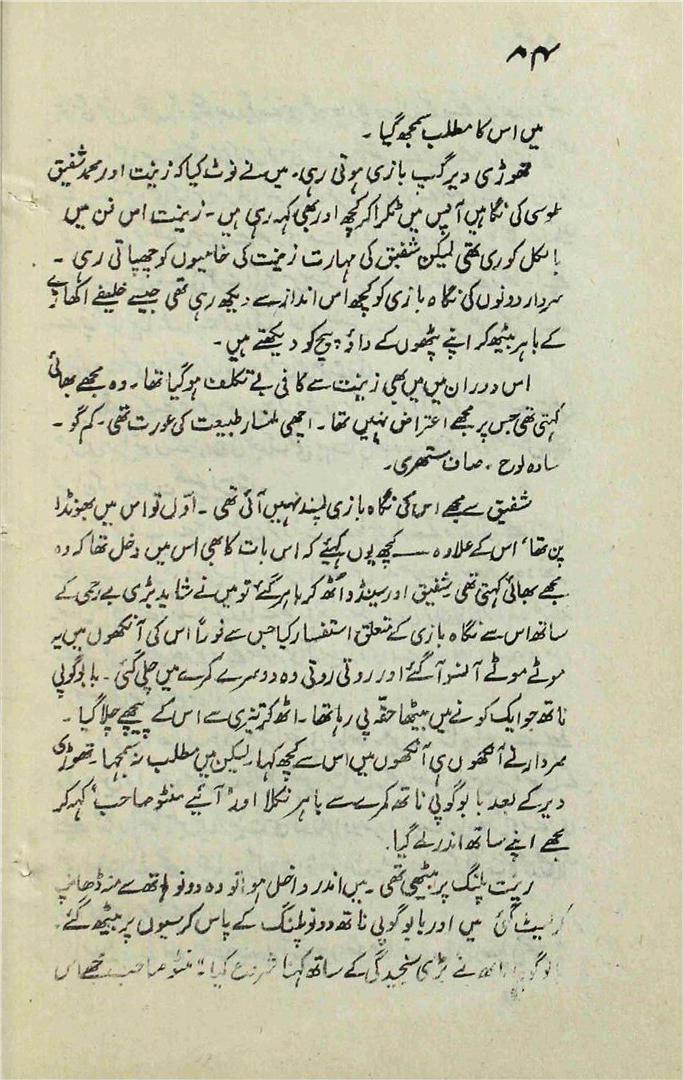 ۸۴
میں اس کا مطلب سمجھ گیا۔
تھوڑی دیر گپ بازی ہوتی رہی۔ میں نے نوٹ کیا کہ زینت اور محمد شفیق
طوسی کی نگاہیں آپس میں ٹکرا کر کچھ اور بھی کہہ رہی ہیں۔ زینت اس فن میں
بالکل کوری تھی لیکن شفیق کی مہارت زینت کی خامیوں کو چھپاتی رہی۔
سردار دونوں کی نگاہ بازی کو کچھ اس انداز سے دیکھ رہی تھی جیسے خلیفے اکھاڑے
کے باہر بیٹھ کر اپنے پٹھوں کے داؤ پیچ کو دیکھتے ہیں۔
اس دوران میں میں بھی زینت سے کافی بے تکلف ہو گیا تھا۔ وہ مجھے بھائی
کہتی تھی جس پر مجھے اعتراض نہیں تھا۔ اچھی ملنسار طبیعت کی عورت تھی۔ کم گو۔
سادہ لوح۔ صاف ستھری۔
شفیق سے مجھے اس کی نگاہ بازی پسند نہیں آئی تھی۔ اول تو اس میں بھونڈا
پن تھا، اس کے علاوہ — کچھ یوں کہیئے کہ اس بات کا بھی اس میں دخل تھا کہ وہ
مجھے بھائی کہتی تھی شفیق اور سینڈو اُٹھ کر باہر گئے تو میں نے شاید بڑی بے رحمی کے
ساتھ اس سے نگاہ بازی کے متعلق استفسار کیا جس سے فوراً اس کی آنکھوں میں یہ
موٹے موٹے آنسو آ گئے اور روتی روتی وہ دوسرے کمرے میں چلی گئی۔ بابو گوپی
ناتھ جو ایک کونے میں بیٹھا حقہ پی رہا تھا۔ اٹھ کر تیزی سے اس کے پیچھے چلا گیا۔
سردار نے آنکھوں ہی آنکھوں میں اس سے کچھ کہا، لیکن میں مطلب نہ سمجھا۔ تھوڑی
دیر کے بعد بابو گوپی ناتھ کمرے سے باہر نکلا اور "آئیے منٹو صاحب" کہہ کر
مجھے اپنے ساتھ اندر لے گیا۔
زینت پلنگ پر بیٹھی تھی۔ میں اندر داخل ہوا تو وہ دونو ہاتھ سے منہ ڈھانپ
کر لیٹ گئی میں اور بابو گوپی ناتھ دونو پلنگ کے پاس کرسیوں پر بیٹھ گئے۔
بابو گوپی ناتھ نے بڑی سنجیدگی کے ساتھ کہنا شروع کیا "منٹو صاحب مجھے اس